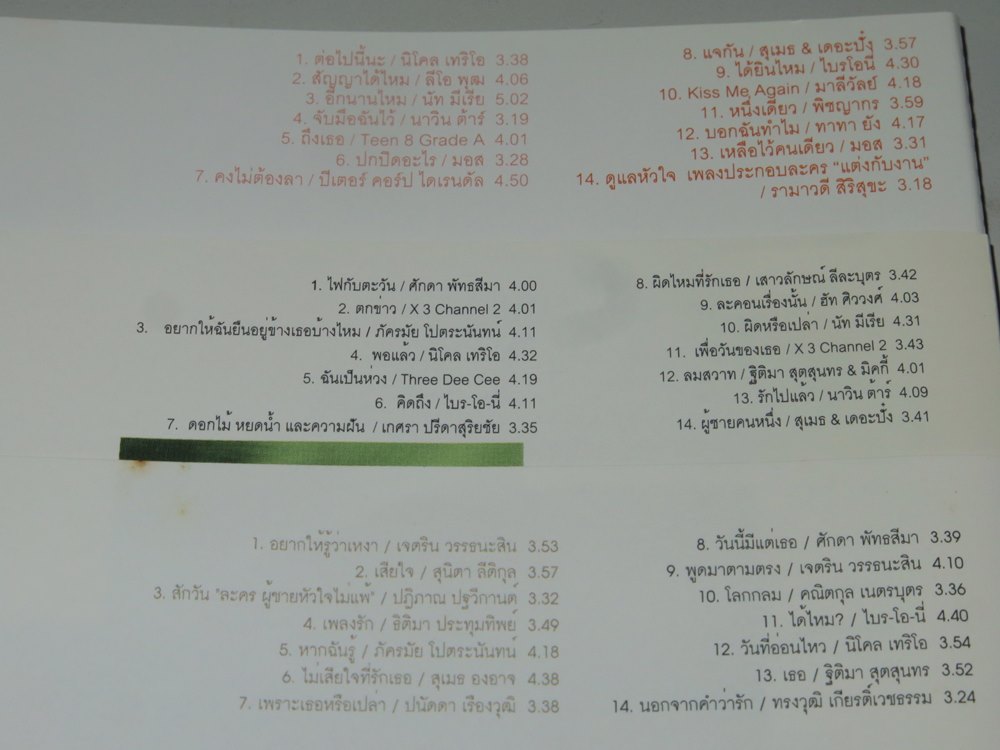 1. ต่อไปนี้นะ / นิโคล เทริโอ 3.38
2. สัญญาได้ไหม / ลีโอ พุฒ 4.06
3. อีกนานไหม / นัท มีเรีย 5.02
4. จับมือฉันไว้ / นาวิน ต้าร์ 3.19
5. ถึงเธอ / Teen 8 Grade A 4.01
6. ปกปิดอะไร / มอส 3.28
7. คงไม่ต้องลา / ปีเตอร์ คอร์ป ไดเรนดัล 4.50
8. แจกัน / สุเมธ & เดอะปั๋ง 3.57
9. ได้ยินไหม / ไบรโอนี่ 4.30
10. Kiss Me Again / มาลีวัลย์ 4.18
11. หนึ่งเดียว / พิชญากร 3.59
12. บอกฉันทำไม / ทาทา ยัง 4.17
13. เหลือไว้คนเดียว / มอส 3.31
14. ดูแลหัวใจ เพลงประกอบละคร “แต่งกับงาน”
/ รามาวดี สิริสุขะ 3.18
1. ไฟกับตะวัน / ศักดา พัทธสีมา 4.00
2. ตกข่าว / X 3 Channel 2 4.01
3. อยากให้ฉันยืนอยู่ข้างเธอบ้างไหม / ภัครมัย โปตระนันทน์ 4.11
4. พอแล้ว / นิโคล เทริโอ 4.32
5. ฉันเป็นห่วง / Three Dee Cee 4.19
6. คิดถึง / ไบร-โอ-นี่ 4.11
7. ดอกไม้ หยดน้ำ และความฝัน / เกศรา ปรีดาสุริยชัย 3.35
8. ผิดไหมที่รักเธอ / เสาวลักษณ์ ลีละบุตร 3.42
9. ละคอนเรื่องนั้น / ฮัท ศิววงศ์ 4.03
10. ผิดหรือเปล่า / นัท มีเรีย 4.31
11. เพื่อวันของเธอ / X 3 Channel 2 3.43
12. ลมสวาท / ฐิติมา สุตสุนทร & มิคกี้ 4.01
13. รักไปแล้ว / นาวิน ต้าร์ 4.09
14. ผู้ชายคนหนึ่ง / สุเมธ & เดอะปั๋ง 3.41
1. อยากให้รู้ว่าเหงา / เจตริน วรรธนะสิน 3.53
2. เสียใจ / สุนิตา ลีติกุล 3.57
3. สักวัน "ละคร ผู้ชายหัวใจไม่แพ้" / ปฏิภาณ ปฐวีกานต์ 3.32
4. เพลงรัก / ธิติมา ประทุมทิพย์ 3.49
5. หากฉันรู้ / ภัครมัย โปตระนันทน์ 4.18
6. ไม่เสียใจที่รักเธอ / สุเมธ องอาจ 4.38
7. เพราะเธอหรือเปล่า / ปนัดดา เรืองวุฒิ 3.38
8. วันนี้มีแต่เธอ / ศักดา พัทธสีมา 3.39
9. พูดมาตามตรง / เจตริน วรรธนะสิน 4.10
10. โลกกลม / คณิตกุล เนตรบุตร 3.36
11. ได้ไหม? / ไบร-โอ-นี่ 4.40
12. วันที่อ่อนไหว / นิโคล เทริโอ 3.54
13. เธอ / ฐิติมา สุตสุนทร 3.52
14. นอกจากคำว่ารัก / ทรงวุฒิ เกียรติ์เวชธรรม 3.24